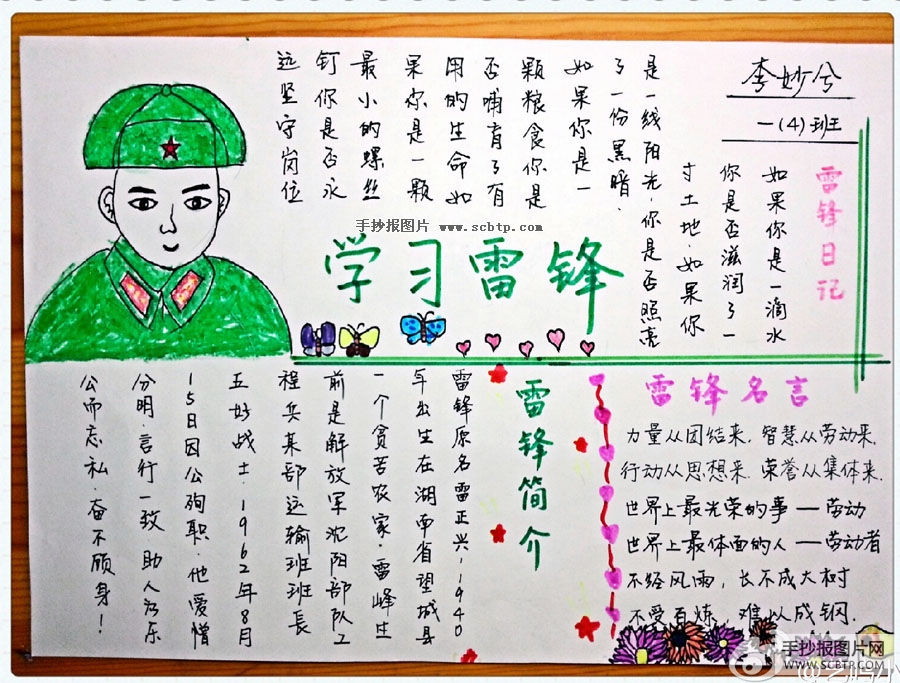 李妙兮
一(4)班
雷锋日记
如果你是一滴水
你是否滋润了一
寸土地·如果你
是一线阳光·你是否照亮
了一份黑暗·
如果你是一
颗粮食你是
否哺育了有
用的生命如
果你是一颗
最小的螺丝
钉你是否永
远坚守岗位
手抄报图片 www.scbtp.com
学习雷锋
雷锋名言
力量从团结来，智慧从劳动来，
行动从思想来，荣誉从集体来．
世界上最光荣的事——劳动
世界上最体面的人——劳动者
不经风雨，长不成大树
不受百炼，难以成钢．
雷锋简介
雷锋原名雷正兴·1940
年出生在湖南省望城县
一个贫苦农家·雷峰生
前是解放军沈阳部队工
程兵某部运输班班长
五好战士·1962年8月
15日因公殉职·他爱憎
分明·言行一致·助人为乐
公而忘私·奋不顾身！
手抄报图片网
WWW.SCBTP.COM